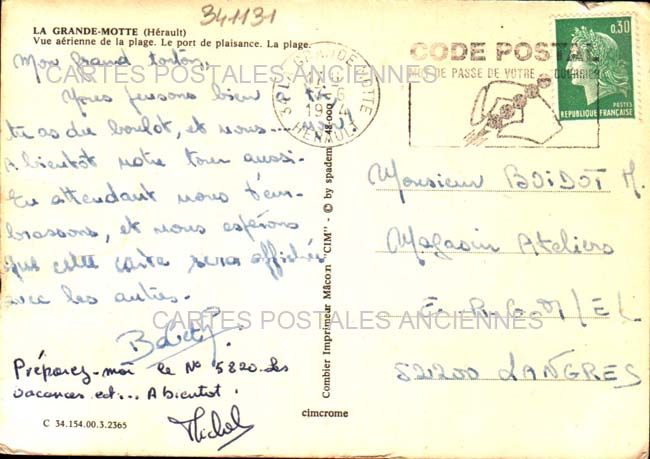 341131
LA GRANDE-MOTTE (Hérault)
Vue aérienne de la plage. Le port de plaisance. La plage.
Mon grand tonton,
Nous pensons bien
tu as du boulot, et nous....
A bientôt notre tour aussi.
En attendant nous t'em-
brassons, et nous espérons
que cette carte sera affichée
avec les autres.
Préparez-moi le No 5820. Les
vacances est... A bientôt!
Michel
C 34.154.00.3.2365
CARTES POSTALES ANCIENNES
CARTES POSTALES ANCIENNES
Combier Imprimeur Mâcon "CIM" - © by spadem 48-000
cimcrome
GRANDE MOTTE
HERAULT
CODE POSTAL
MOT DE PASSE DE VOTRE COURRIER
0,30
POSTES
REPUBLIQUE FRANÇAISE
Monsieur BOIDOT M.
Magasin Ateliers
52200 LANGRES